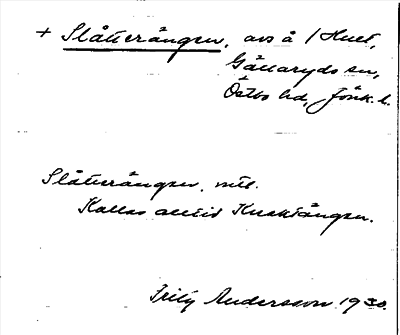 + Slåtterängen, avs å 1 Huet,
Gällaryds sn,
Östbo hd, Jönk. l.
Slåtterängen, ntl.
Kallas alltid Knektängen.
Frity Andersson 1930.